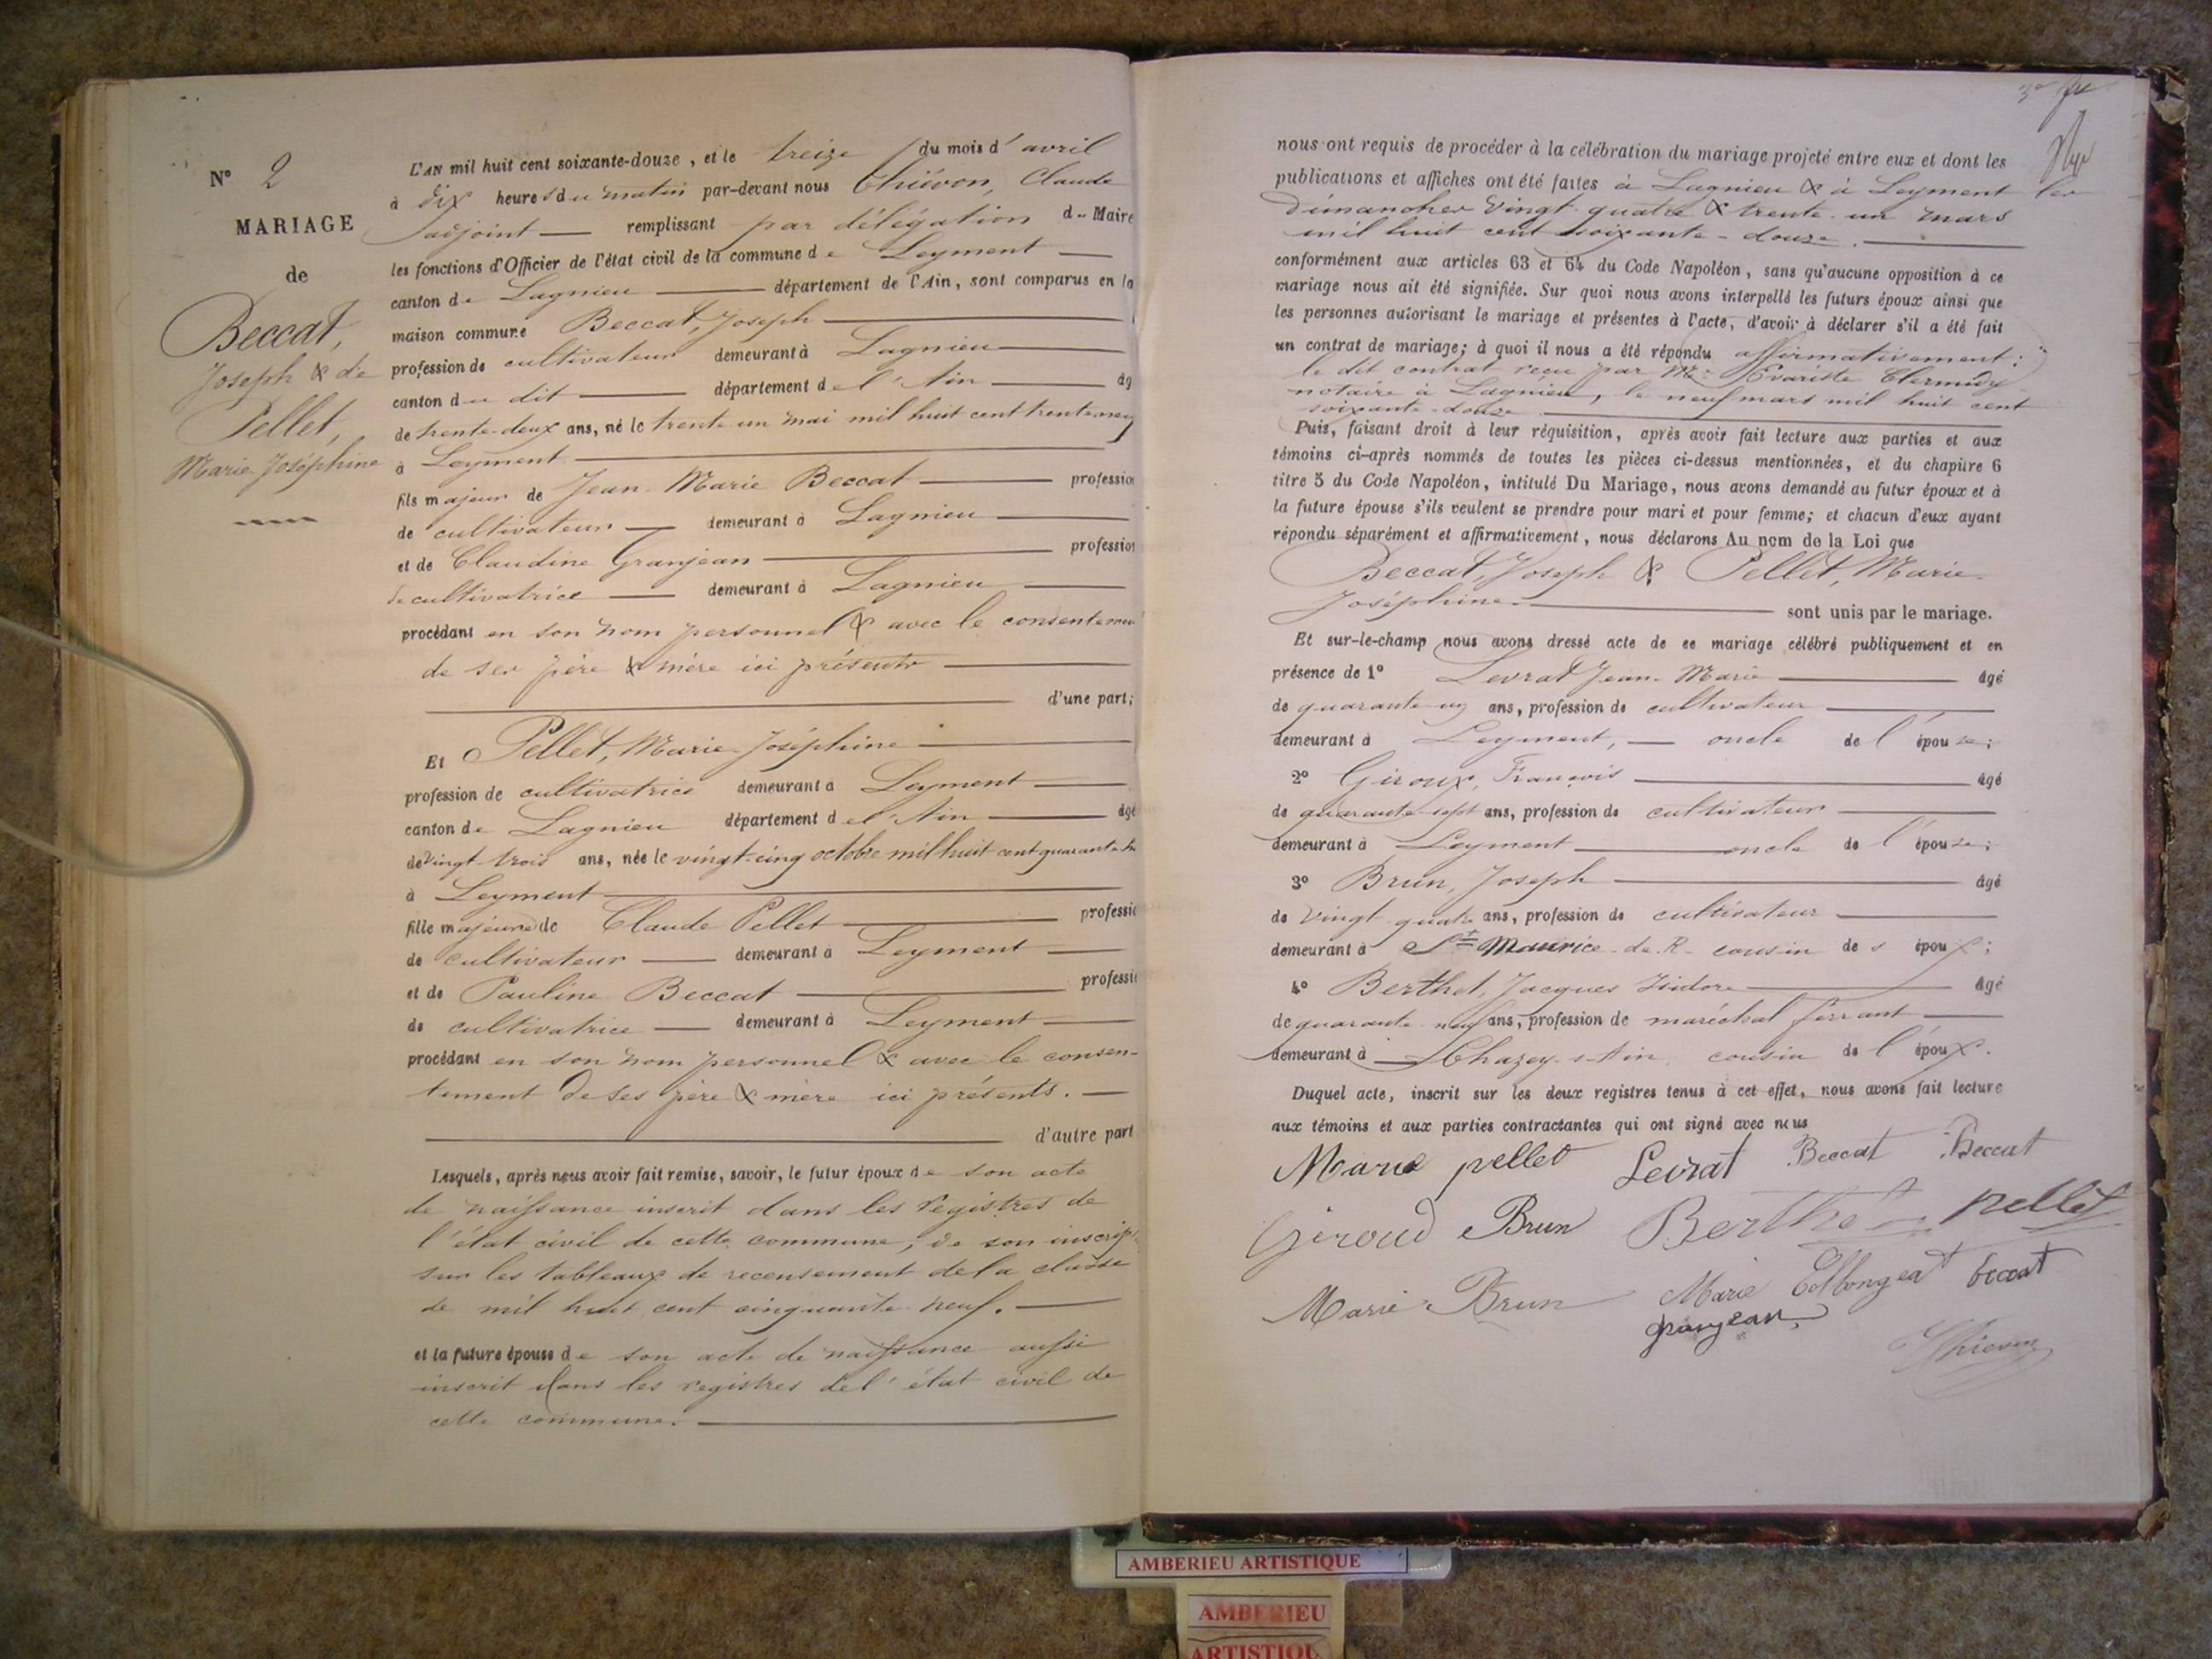 N° 2
MARIAGE
de
Beccat,
Joseph & de
Pellet,
Marie Joséphine
L'AN mil huit cent soixante-douze, et le treize du mois d'avril
à dix heures du matin par-devant nous Thiévon, Claude
adjoint remplissant par délégation d.. Maire
les fonctions d'Officier de l'état civil de la commune de Leyment
canton de Lagnieu département de l'Ain, sont comparus en la
maison commune Beccat, Joseph
profession de cultivateur demeurant à Lagnieu
canton du dit département de l'Ain âg
de trente-deux ans, né le trente un mai mil huit cent trente neuf
à Leyment
fils majeur de Jean-Marie Beccat profession
de cultivateur demeurant à Lagnieu
et de Claudine Granjean profession
de cultivatrice demeurant à Lagnieu
procédant en son nom personnel & avec le consentemen
de ses père & mère ici présents
d'une part;
Et Pellet, Marie-Joséphine
profession de cultivatrice demeurant à Leyment
canton de Lagnieu département de l'Ain âgé
de vingt-trois ans, née le vingt-cinq octobre mil huit cent quarante
à Leyment
fille majeure de Claude Pellet professio
de cultivateur demeurant à Leyment
et de Pauline Beccat professio
de cultivatrice demeurant à Leyment
procédant en son nom personnel & avec le consen-
tement de ses père & mère ici présents.
d'autre part
Lesquels, après nous avoir fait remise, savoir, le futur époux de son acte
de naissance inscrit dans les registres de
l'état civil de cette commune; de son inscrip
sur les tableaux de recensement de la classe
de mil huit cent cinquante-neuf.
et la future épouse de son acte de naissance aussi
inscrit dans les registres de l'état civil de
cette commune.
nous ont requis de procéder à la célébration du mariage projeté entre eux et dont les
publications et affiches ont été faites à Lagnieu & à Leyment les
dimanches vingt-quatre & trente-un mars
mil huit cent soixante-douze.
conformément aux articles 63 et 64 du Code Napoléon, sans qu'aucune opposition à ce
mariage nous ait été signifiée. Sur quoi nous avons interpellé les futurs époux ainsi que
les personnes autorisant le mariage et présentes à l'acte, d'avoir à déclarer s'il a été fait
un contrat de mariage; à quoi il nous a été répondu affirmativement:
le dit contrat reçu par Me Evariste Clermidy
notaire à Lagnieu, le neuf mars mil huit cent
soixante-douze.
Puis, faisant droit à leur réquisition, après avoir fait lecture aux parties et aux
témoins ci-après nommés de toutes les pièces ci-dessus mentionnées, et du chapitre 6
titre 5 du Code Napoléon, intitulé Du Mariage, nous avons demandé au futur époux et à
la future épouse s'ils veulent se prendre pour mari et pour femme; et chacun d'eux ayant
répondu séparément et affirmativement, nous déclarons Au nom de la Loi que
Beccat, Joseph & Pellet, Marie-
Joséphine sont unis par le mariage.
Et sur-le-champ nous avons dressé acte de ce mariage célébré publiquement et en
présence de 1° Levrat Jean-Marie âgé
de quarante-un ans, profession de cultivateur
demeurant à Leyment, oncle de l'épouse;
2° Giroux, François âgé
de quarante-sept ans, profession de cultivateur
demeurant à Leyment oncle de l'épouse;
3° Brun, Joseph âgé
de vingt-quatre ans, profession de cultivateur
demeurant à St Maurice-de-R- cousin des époux;
4° Berthet, Jacques Isidore âgé
de quarante-neuf ans, profession de maréchal ferrant
demeurant à Chazey-s-Ain cousin de l'époux.
Duquel acte, inscrit sur les deux registres tenus à cet effet, nous avons fait lecture
aux témoins et aux parties contractantes qui ont signé avec nous
Marie pellet Levrat Beccat Beccat
Giroud Brun Berthet pellet
Marie Brun Marie Collonget beccat
granjean
Thievon
AMBERIEU ARTISTIQUE
AMBERIEU
ARTISTIQU